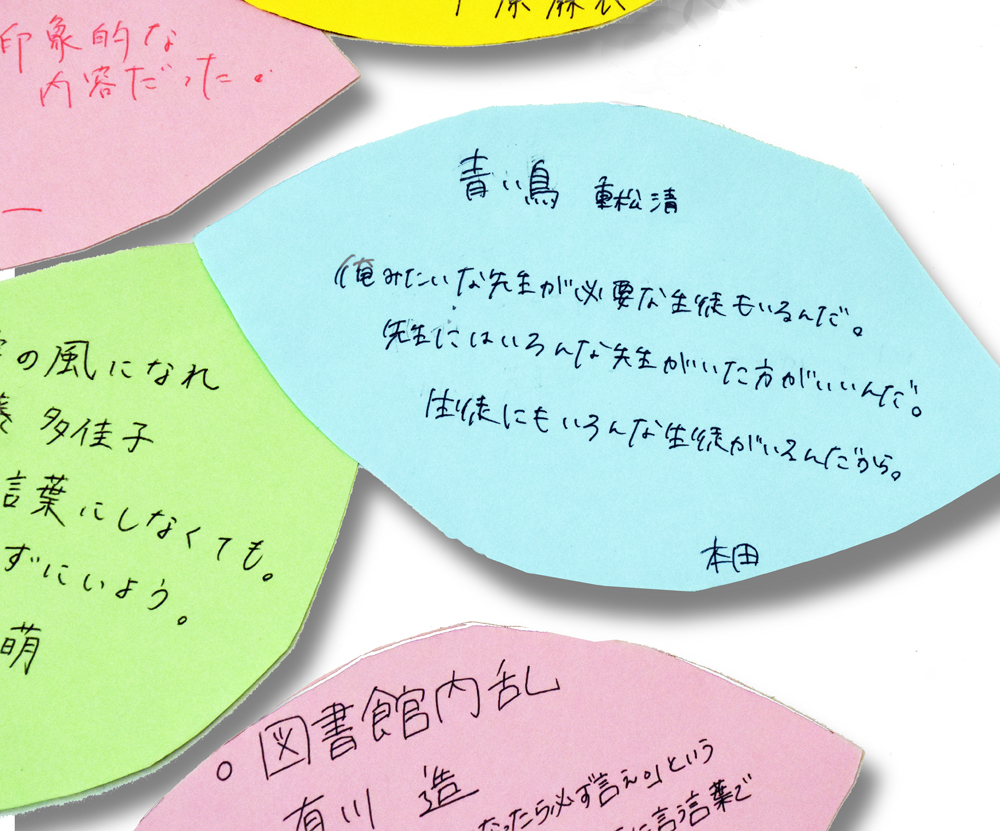 印象的な
内容だった。
青い鳥 重松清
(俺みたいな先生が必要な生徒もいるんだ。
先生にはいろんな先生がいた方がいいんだ。
生徒にもいろんな生徒がいるんだから。
本田
の風になれ
多佳子
言葉にしなくても。
ずにいよう。
萌
。図書館内乱
有川 造
なったら必ず言え。」という
に言う言葉で